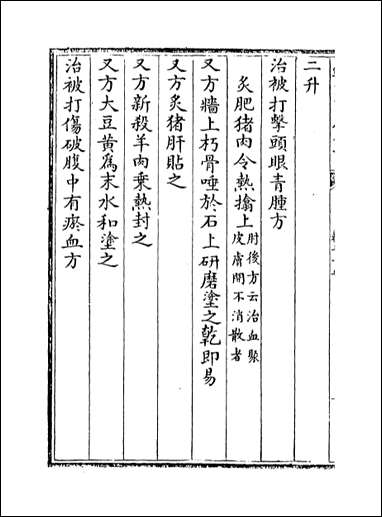 二升
治被打擊頭眼青腫方
炙肥猪肉令熱擒上肘後方云治血聚皮膚間不消散者
又方牆上朽骨唾於石上研磨塗之乾即易
又方炙猪肝貼之
又方新殺羊肉乗熱封之
又方大豆黄為末水和塗之
治被打傷破腹中有瘀血方